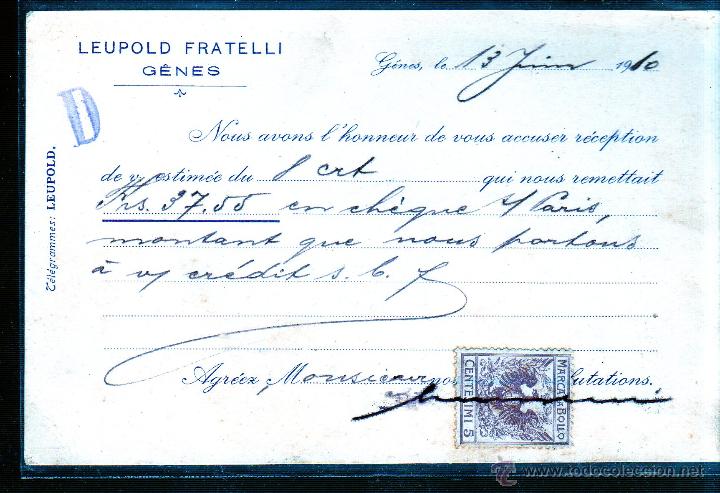 LEUPOLD FRATELLI
GÊNES
Gênes, le 13 Juin 1910
D
Nous avons l'honneur de vous accuser réception
de v/ estimée du 8 crt qui nous remettait
Frs. 37.55 en chèque s/ Paris,
montant que nous portons
à v/ crédit s. b. f.
Agréez, Monsieur nos utations.
Télégrammes: LEUPOLD.
MARCA DA BOLLO
CENTESIMI 5
www.todocoleccion.net